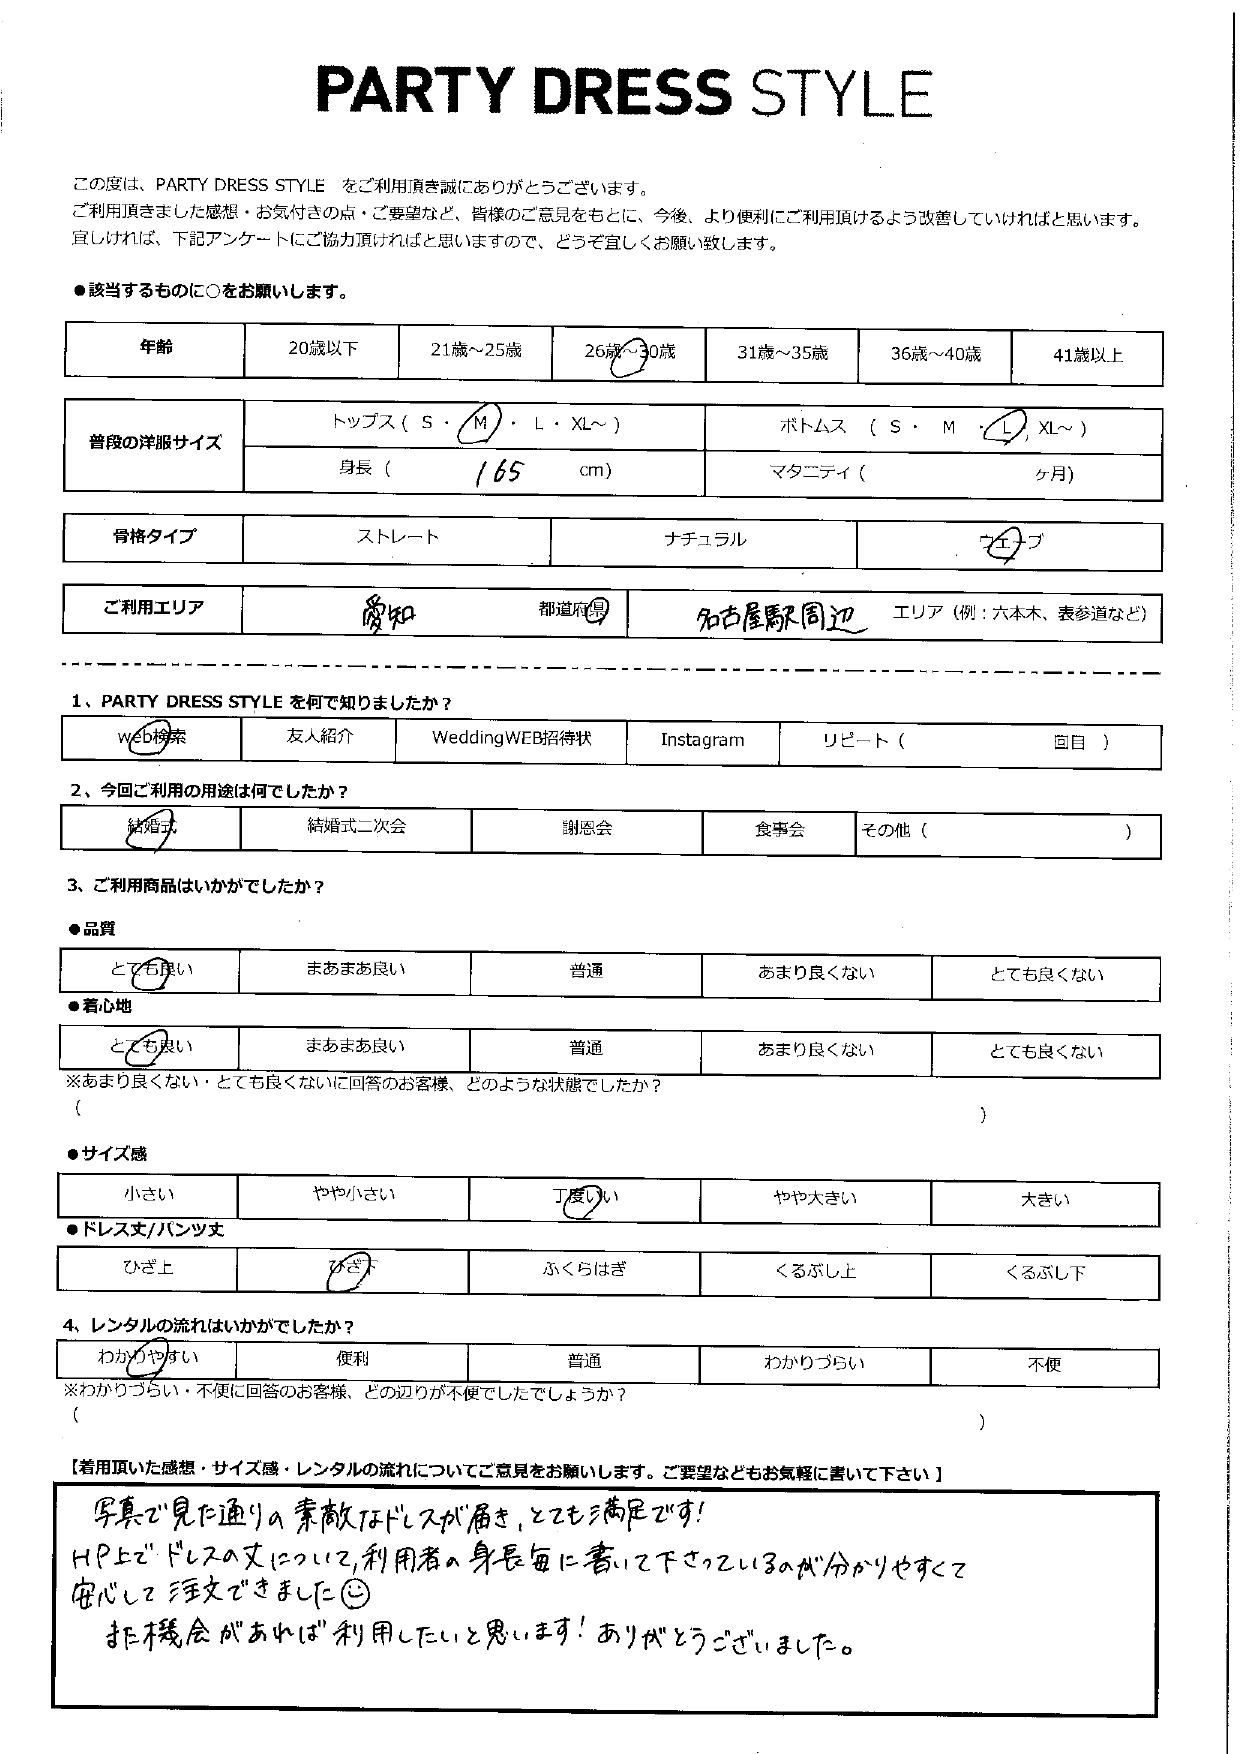 PARTY DRESS STYLE
この度は、PARTY DRESS STYLE をご利用頂き誠にありがとうございます。
ご利用頂きました感想・お気付きの点・ご要望など、皆様のご意見をもとに、今後、より便利にご利用頂けるよう改善していければと思います。
宜しければ、下記アンケートにご協力頂ければと思いますので、どうぞ宜しくお願い致します。
●該当するものに○をお願いします。
年齢 20歳以下 21歳～25歳 26歳～30歳 31歳～35歳 36歳～40歳 41歳以上
普段の洋服サイズ トップス ( S ・ M ・ L ・ XL～ ) ボトムス ( S ・ M ・ L , XL～ )
身長 ( 165 cm) マタニティ ( ヶ月)
骨格タイプ ストレート ナチュラル ウエーブ
ご利用エリア 愛知 都道府県 名古屋駅周辺 エリア（例：六本木、表参道など）
1、PARTY DRESS STYLE を何で知りましたか？
web検索 友人紹介 WeddingWEB招待状 Instagram リピート ( 回目 )
2、今回ご利用の用途は何でしたか？
結婚式 結婚式二次会 謝恩会 食事会 その他 ( )
3、ご利用商品はいかがでしたか？
●品質
とても良い まあまあ良い 普通 あまり良くない とても良くない
●着心地
とても良い まあまあ良い 普通 あまり良くない とても良くない
※あまり良くない・とても良くないに回答のお客様、どのような状態でしたか？
( )
●サイズ感
小さい やや小さい 丁度いい やや大きい 大きい
●ドレス丈/パンツ丈
ひざ上 ひざ下 ふくらはぎ くるぶし上 くるぶし下
4、レンタルの流れはいかがでしたか？
わかりやすい 便利 普通 わかりづらい 不便
※わかりづらい・不便に回答のお客様、どの辺りが不便でしたでしょうか？
( )
【着用頂いた感想・サイズ感・レンタルの流れについてご意見をお願いします。ご要望などもお気軽に書いて下さい 】
写真で見た通りの素敵なドレスが届き、とても満足です！
HP上でドレスの丈について、利用者の身長毎に書いて下さっているのが分かりやすくて
安心して注文できました☺
また機会があれば利用したいと思います！ありがとうございました。